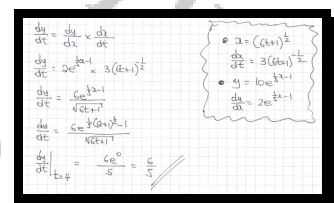 dy/dt = dy/dx × dx/dt
dy/dt = 2e^{1/5 x-1} × 3(6t+1)^{-1/2}
dy/dt = 6e^{1/5 x-1} / √6t+1
dy/dt = 6e^{1/5 (6t+1)^{1/2} -1} / √6t+1
dy/dt |_{t=4} = 6e^0 / 5 = 6/5
• x = (6t+1)^{1/2}
dx/dt = 3(6t+1)^{-1/2}
• y = 10e^{1/5 x-1}
dy/dx = 2e^{1/5 x-1}